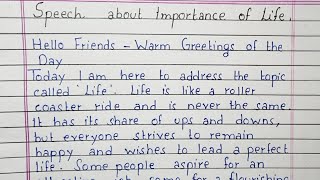 Speech about Importance of Life.
Hello Friends - Warm Greetings of the
Day
Today I am here to address the topic
called 'Life'. Life is like a roller
coaster ride and is never the same.
It has its share of ups and downs,
but everyone strives to remain
happy and wishes to lead a perfect
life. Some people aspire for an